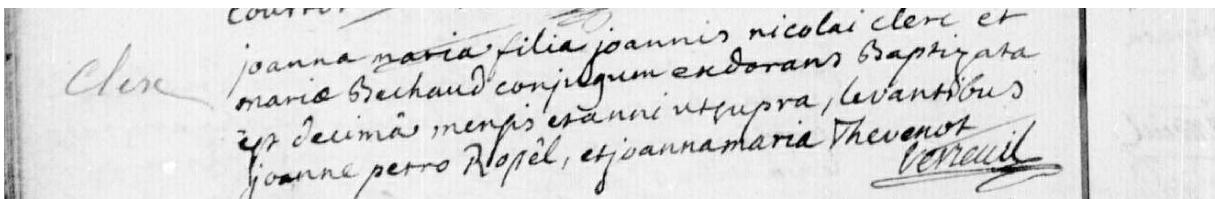 Clerc
joanna maria filia joannis nicolai clerc et
mariæ Bechaud conjugum exdorans Baptizata
est decimâ mensis et anni ut supra, levantibus
joanne petro Ropêl, et joanna maria Thevenot
Verreuil